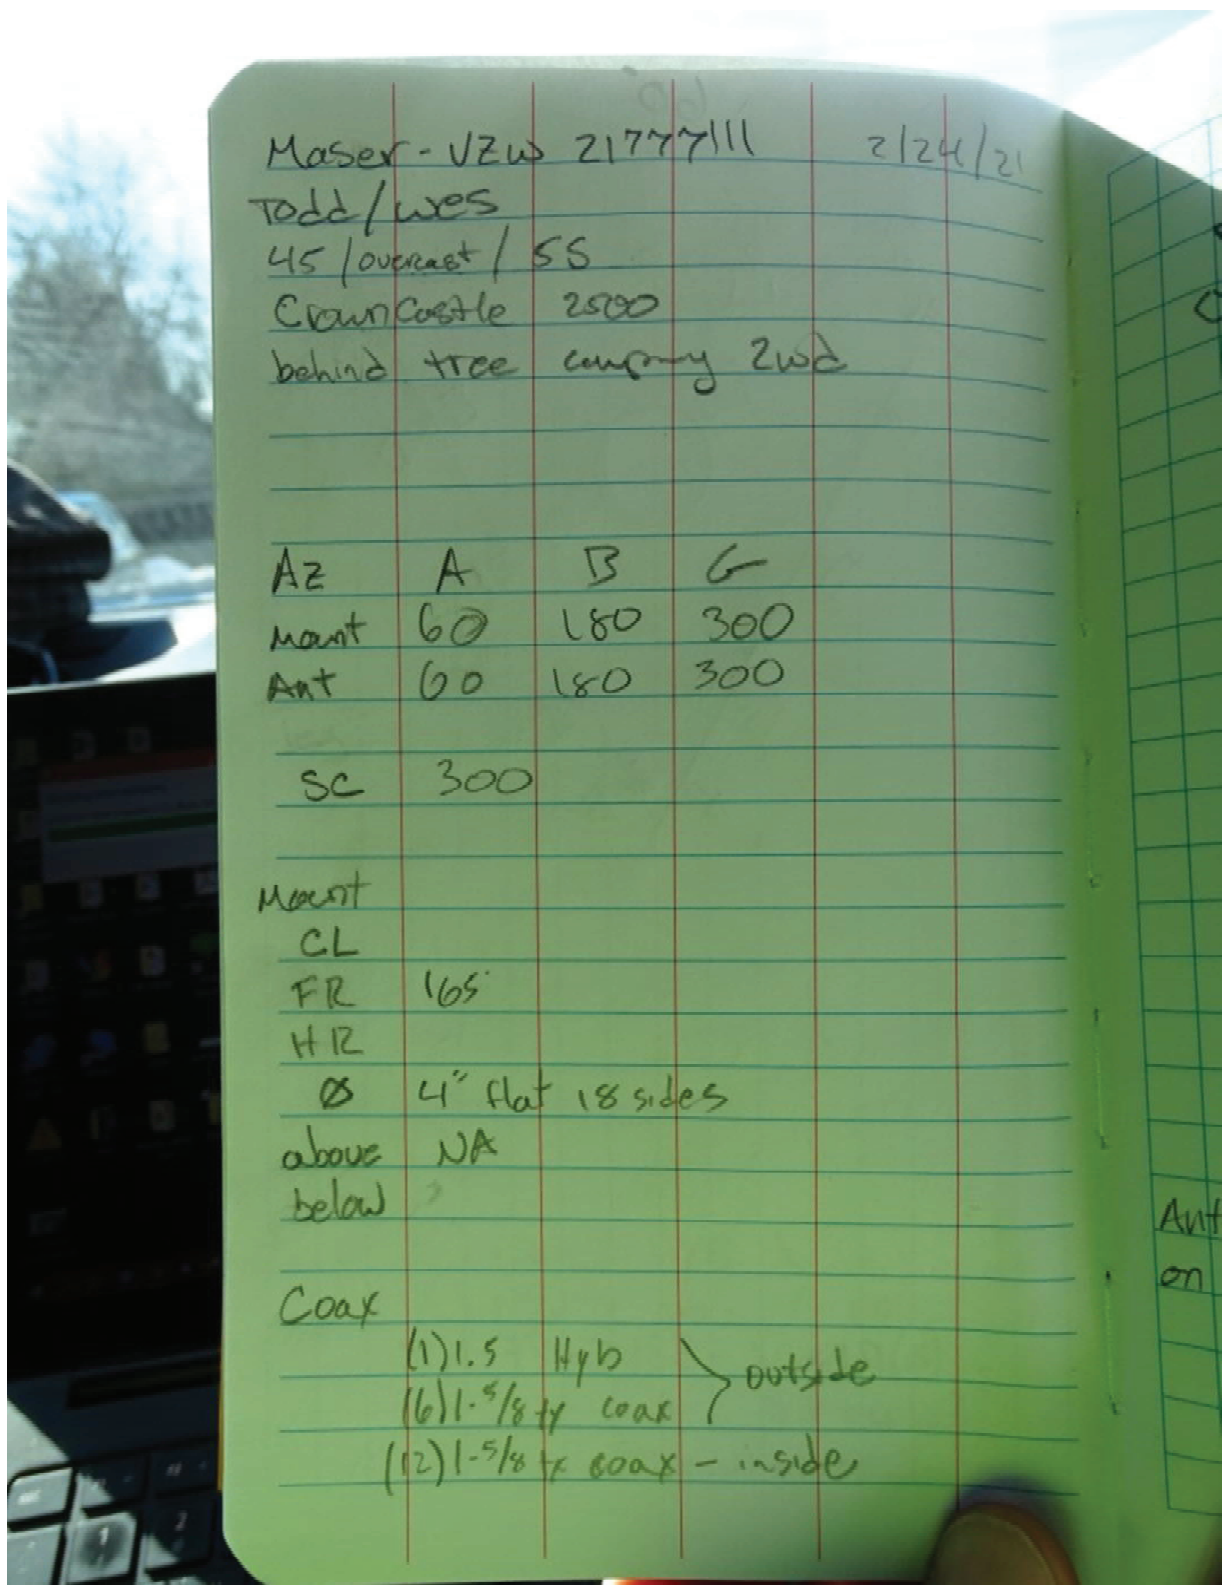 Maser - VZW 21777111 2/24/21
Todd/wes
45/overcast/SS
Crown Castle 2500
behind tree company 2wd
Az A B G
Mount 60 180 300
Ant 60 180 300
SC 300
Mount
CL
FR 165
HR
Ø 4" flat 18 sides
above NA
below
Coax
(1) 1.5 Hyb
outside
(6) 1-5/8 tx coax
(12) 1-5/8 tx coax - inside
Ant
on